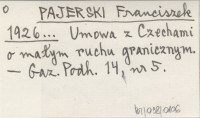 o PAJERSKI Franciszek
1926... Umowa z Czechami
o małym ruchu granicznym.
— Gaz. Podh. 14, nr 5.